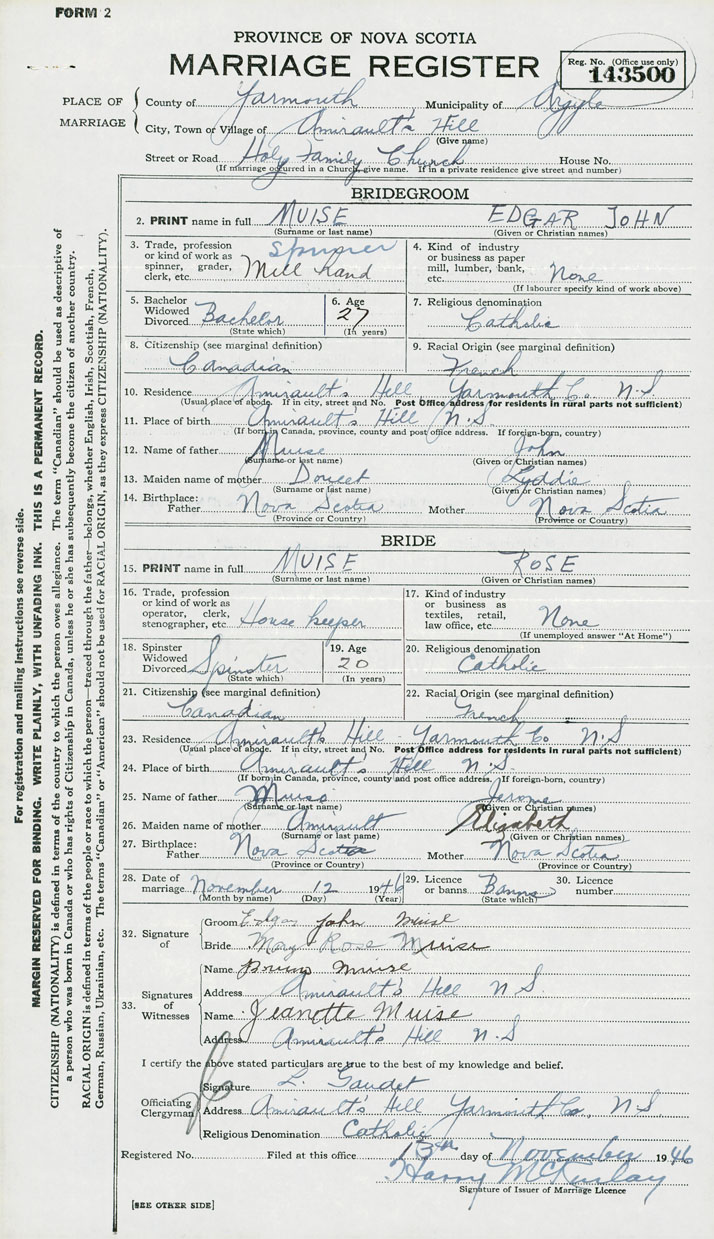 FORM 2
PROVINCE OF NOVA SCOTIA
MARRIAGE REGISTER
Reg. No. (Office use only)
143500
PLACE OF MARRIAGE
County of Yarmouth Municipality of Argyle
City, Town or Village of Amirault's Hill
(Give name)
Street or Road Holy Family Church House No.
(If marriage occurred in a Church, give name. If in a private residence give street and number)
BRIDEGROOM
2. PRINT name in full MUISE EDGAR JOHN
(Surname or last name) (Given or Christian names)
3. Trade, profession or kind of work as spinner, grader, clerk, etc. Spinner Mill hand
4. Kind of industry or business as paper mill, lumber, bank, etc. None
(If labourer specify kind of work above)
5. Bachelor Widowed Divorced Bachelor
(State which)
6. Age 27
(In years)
7. Religious denomination
Catholic
8. Citizenship (see marginal definition)
Canadian
9. Racial Origin (see marginal definition)
French
10. Residence Amirault's Hill Yarmouth Co. N.S
(Usual place of abode. If in city, street and No. Post Office address for residents in rural parts not sufficient)
11. Place of birth Amirault's Hill N.S.
(If born in Canada, province, county and post office address. If foreign-born, country)
12. Name of father Muise John
(Surname or last name) (Given or Christian names)
13. Maiden name of mother Douset Lyddie
(Surname or last name) (Given or Christian names)
14. Birthplace: Father Nova Scotia Mother Nova Scotia
(Province or Country) (Province or Country)
BRIDE
15. PRINT name in full MUISE ROSE
(Surname or last name) (Given or Christian names)
16. Trade, profession or kind of work as operator, clerk, stenographer, etc House keeper
17. Kind of industry or business as textiles, retail, law office, etc. None
(If unemployed answer "At Home")
18. Spinster Widowed Divorced Spinster
(State which)
19. Age 20
(In years)
20. Religious denomination
Catholic
21. Citizenship (see marginal definition)
Canadian
22. Racial Origin (see marginal definition)
French
23. Residence Amirault's Hill - Yarmouth Co N.S
(Usual place of abode. If in city, street and No. Post Office address for residents in rural parts not sufficient)
24. Place of birth Amirault's Hill N.S
(If born in Canada, province, county and post office address. If foreign-born, country)
25. Name of father Muise Jerome
(Surname or last name) (Given or Christian names)
26. Maiden name of mother Amirault Elizabeth
(Surname or last name) (Given or Christian names)
27. Birthplace: Father Nova Scotia Mother Nova Scotia
(Province or Country) (Province or Country)
28. Date of marriage November 12 1946
(Month by name) (Day) (Year)
29. Licence or banns Banns
(State which)
30. Licence number
32. Signature of
Groom Edgar John Muise
Bride Mary Rose Muise
33. Signatures of Witnesses
Name Muise
Address Amirault's Hill N S
Name Jeanette Muise
Address Amirault's Hill N.S
I certify the above stated particulars are true to the best of my knowledge and belief.
Officiating Clergyman
Signature L. Gaudet
Address Amirault's Hill Yarmouth Co., N.S.
Religious Denomination Catholic
Registered No. Filed at this office 13th day of November 1946
Harry McKinlay
Signature of Issuer of Marriage Licence
[SEE OTHER SIDE]
For registration and mailing instructions see reverse side.
MARGIN RESERVED FOR BINDING. WRITE PLAINLY, WITH UNFADING INK. THIS IS A PERMANENT RECORD.
CITIZENSHIP (NATIONALITY) is defined in terms of the country to which the person owes allegiance. The term "Canadian" should be used as descriptive of
a person who was born in Canada or who has rights of Citizenship in Canada, unless he or she has subsequently become the citizen of another country.
RACIAL ORIGIN is defined in terms of the people or race to which the person—traced through the father—belongs, whether English, Irish, Scottish, French,
German, Russian, Ukrainian, etc. The terms "Canadian" or "American" should not be used for RACIAL ORIGIN, as they express CITIZENSHIP (NATIONALITY).